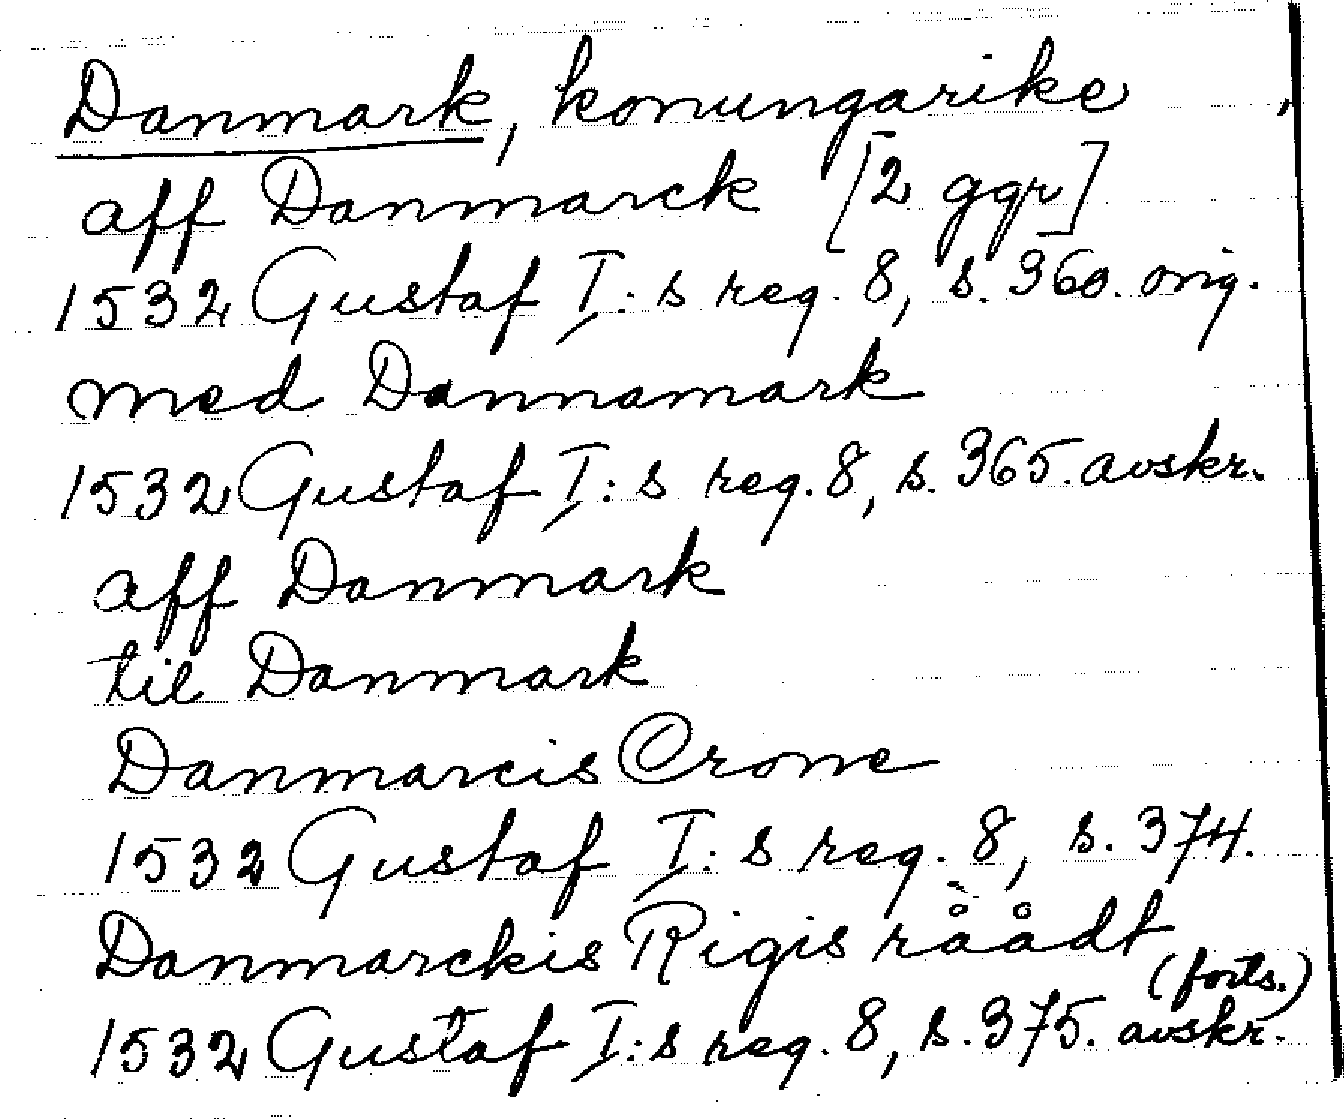 Danmark, konungarike
aff Danmarck [2 ggr]
1532 Gustaf I:s reg. 8, s. 360. orig.
med Dannamark
1532 Gustaf I:s reg. 8, s. 365. avskr.
aff Danmark
til Danmark
Danmarcis Crone
1532 Gustaf I:s reg. 8, s. 374.
Danmarckis Rigis råådt
(forts.)
1532 Gustaf I:s reg. 8, s. 375. avskr.